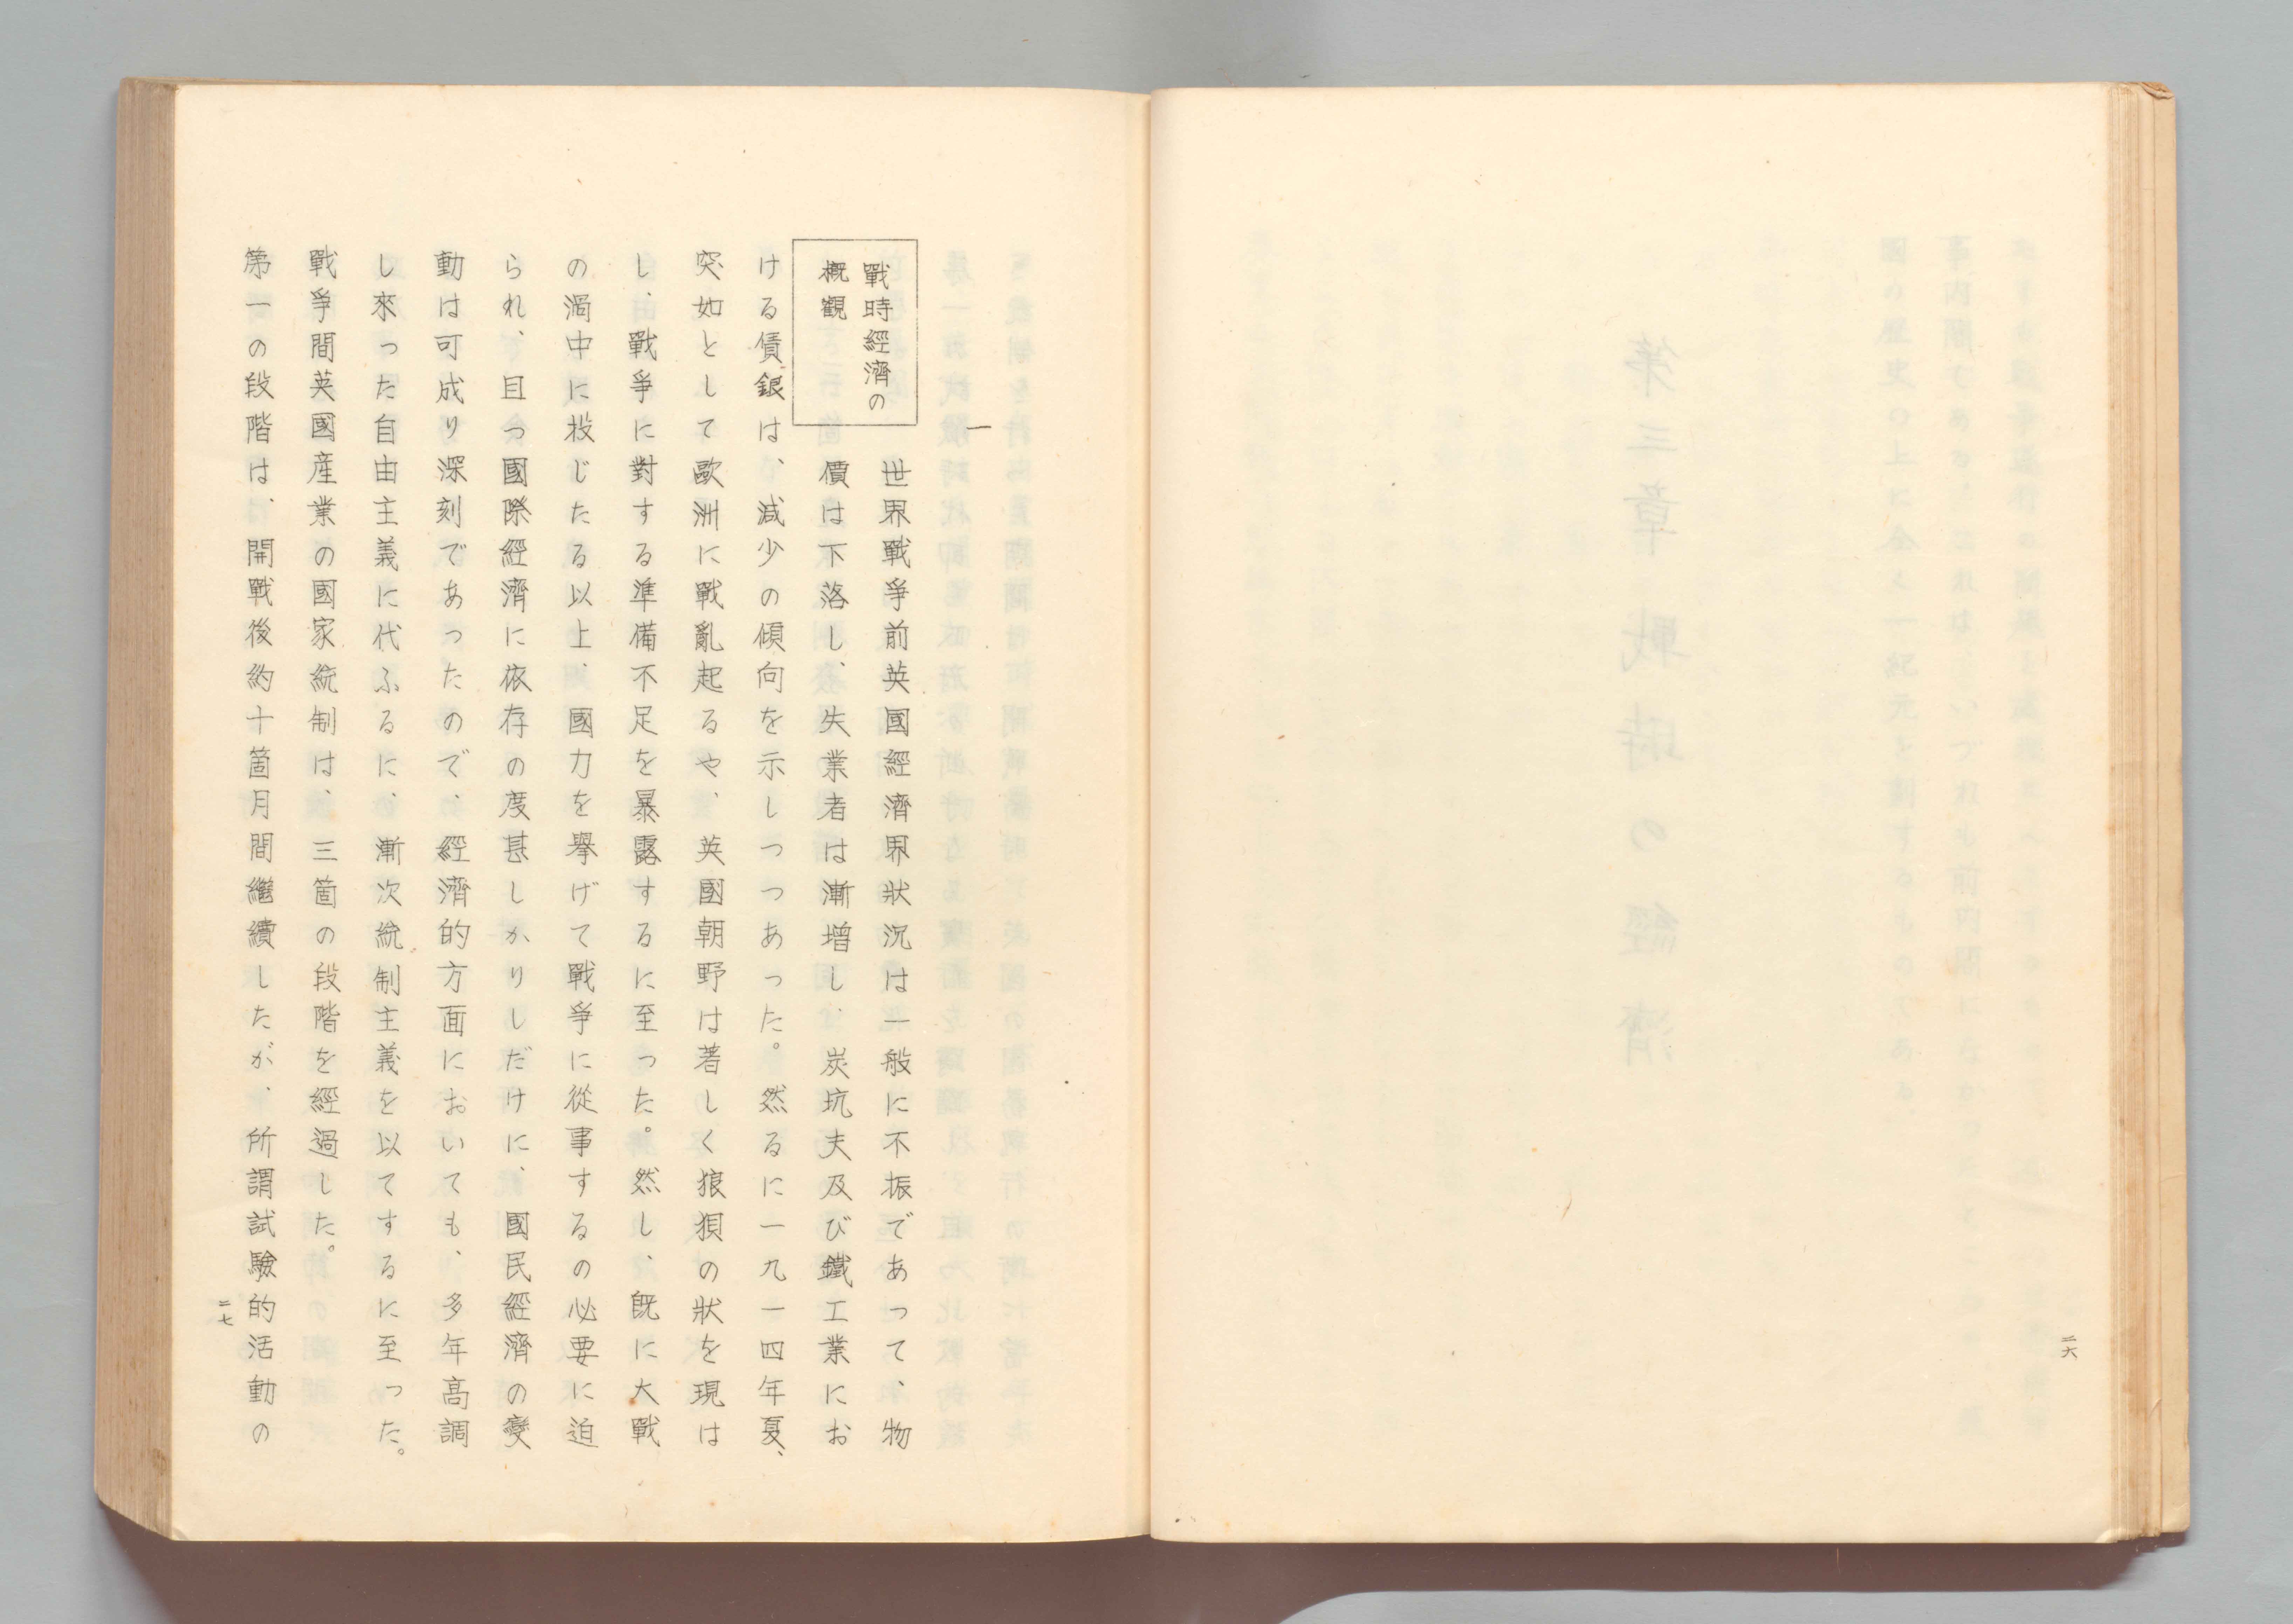 二六
一
戰時經濟の
概觀
世界戰爭前英國經濟界狀況は一般に不振であって、物
價は下落し、失業者は漸増し、炭坑夫及び鐵工業にお
ける賃銀は、減少の傾向を示しつつあった。然るに一九一四年夏、
突如として歐洲に戰亂起るや、英國朝野は著しく狼狽の狀を現は
し、戰爭に對する準備不足を暴露するに至った。然し、既に大戰
の渦中に投じたる以上、國力を擧げて戰爭に從事するの必要に迫
られ、且つ國際經濟に依存の度甚しかりしだけに、國民經濟の變
動は可成り深刻であったので、經濟的方面においても、多年高調
し來った自由主義に代ふるに、漸次統制主義を以てするに至った。
戰爭間英國産業の國家統制は、三箇の段階を經過した。
第一の段階は、開戰後約十箇月間繼續したが、所謂試驗的活動の
二七